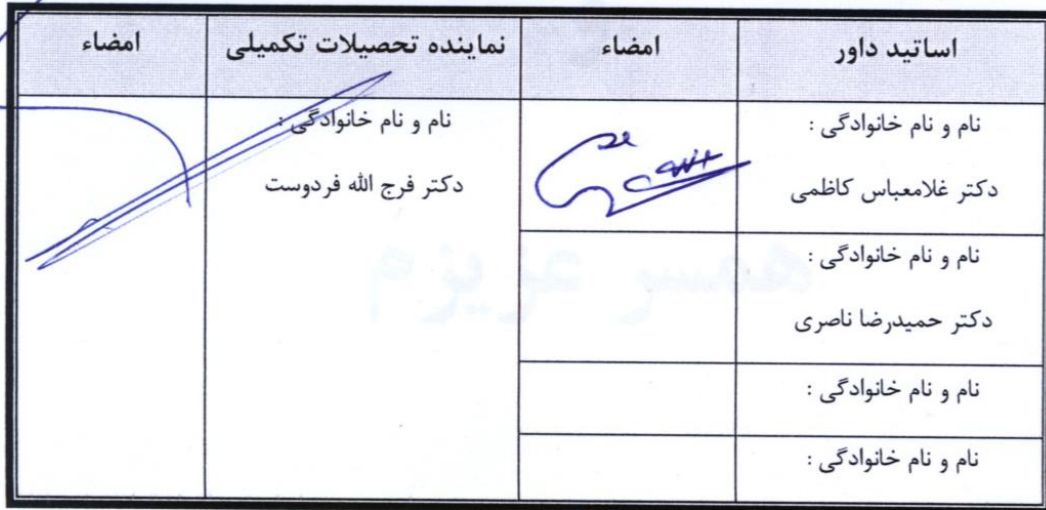 اساتید داور
امضاء
نماینده تحصیلات تکمیلی
امضاء
نام و نام خانوادگی :
دکتر غلامعباس کاظمی
نام و نام خانوادگی :
دکتر فرج الله فردوست
نام و نام خانوادگی :
دکتر حمیدرضا ناصری
نام و نام خانوادگی :
نام و نام خانوادگی :